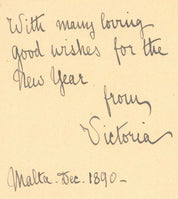 With many loving
good wishes for the
New Year
from
Victoria
Malta. Dec. 1890–